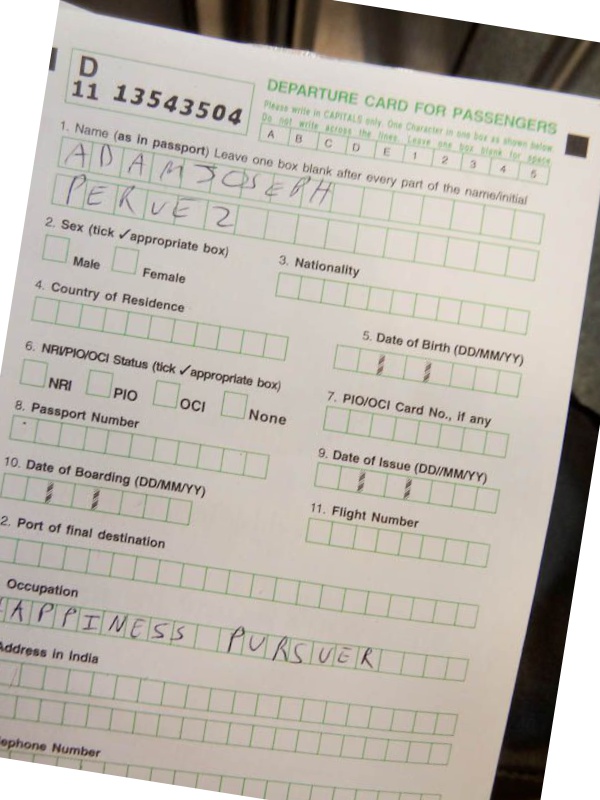 D
11 13543504
DEPARTURE CARD FOR PASSENGERS
Please write in CAPITALS only. One Character in one box as shown below.
Do not write across the lines. Leave one box blank for space
A B C D E 1 2 3 4 5
1. Name (as in passport) Leave one box blank after every part of the name/initial
ADAM JOSEPH
PERVEZ
2. Sex (tick ✓appropriate box)
Male Female
3. Nationality
4. Country of Residence
5. Date of Birth (DD/MM/YY)
6. NRI/PIO/OCI Status (tick ✓appropriate box)
NRI PIO OCI None
7. PIO/OCI Card No., if any
8. Passport Number
9. Date of Issue (DD//MM/YY)
10. Date of Boarding (DD/MM/YY)
11. Flight Number
2. Port of final destination
Occupation
HAPPINESS PURSUER
Address in India
ephone Number